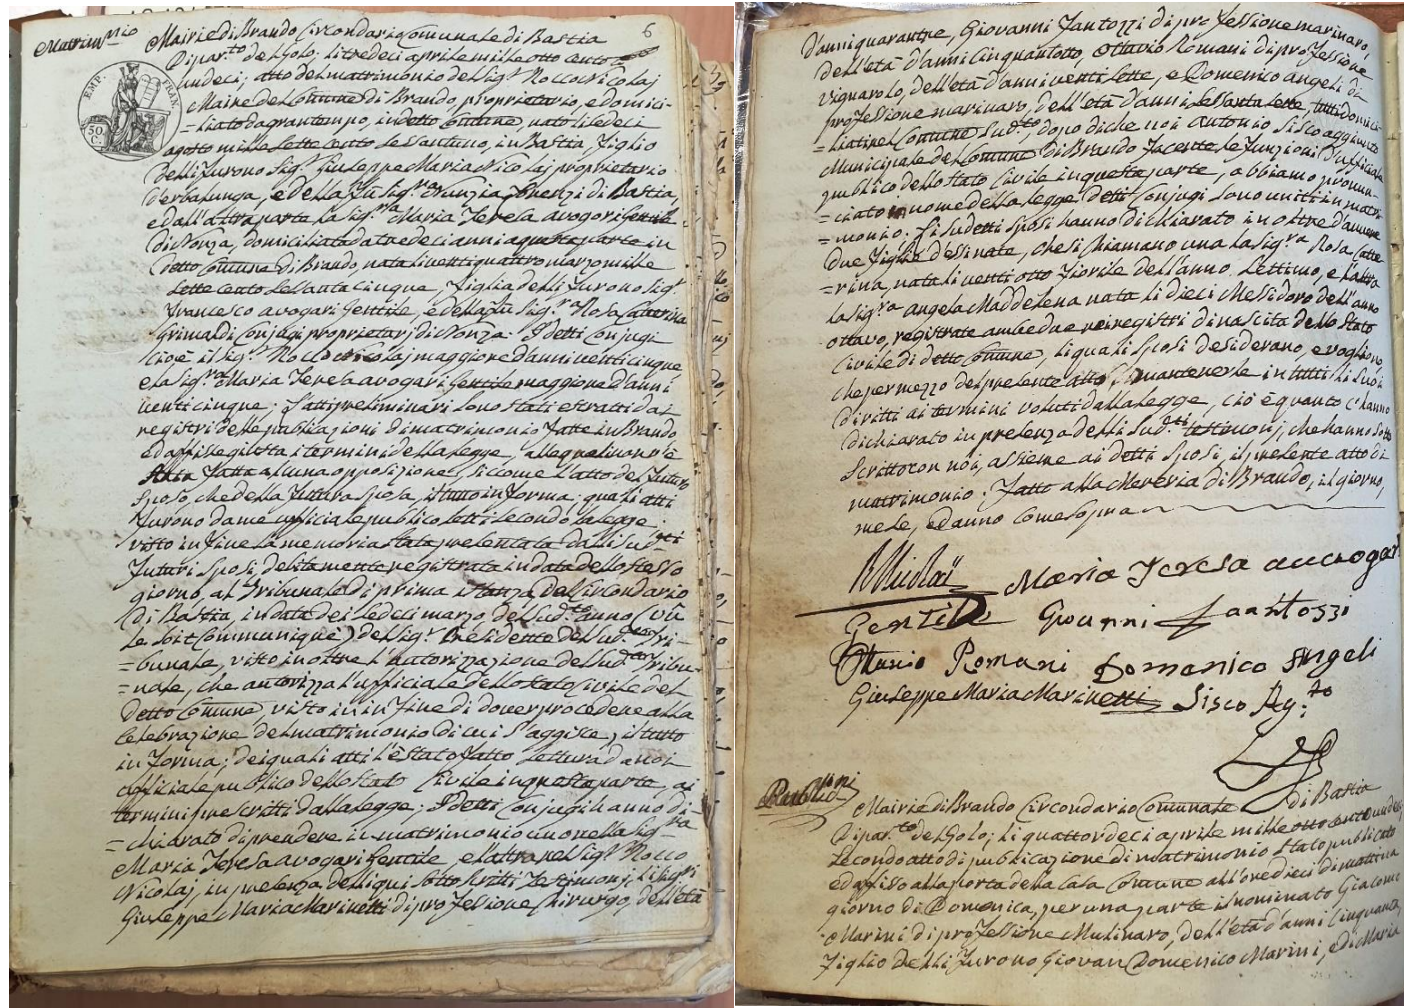 6
Matrimonio
Mairie di Brando Circondario Comunale di Bastia
Dipar.to del Golo; li tredeci aprile mille otto cento
undeci; atto del matrimonio del Sig.r Rocco Nicolaj
Maire del Comune di Brando, proprietario, e domici-
=liato da gran tempo, in detto Comune, nato li sedeci
agosto mille sette cento sessantuno, in Bastia, figlio
delli furono Sig.r Giuseppe Maria Nicolaj proprietario
d'erbalunga, e della fu Sig.ra Nunzia Frenzi di Bastia,
e dall'altra parte la Sig.ra Maria Teresa avogari Gentile
di Nonza, domiciliata da tredeci anni a questa parte in
detto Comune di Brando, nata li venti quattro marzo mille
sette cento sessanta cinque, figlia delli furono Sig.r
Francesco avogari Gentile, e della fu Sig.ra Rosa Caterina
Grimaldi Conjugi proprietarj di Nonza. I detti Conjugi
cioè il Sig.r Rocco Nicolaj maggiore d'anni venti cinque,
e la Sig.ra Maria Teresa avogari Gentile maggiore d'anni
venti cinque; L'atti preliminari sono stati estratti dai
registri delle publicazioni di matrimonio fatte in Brando
ed affisse giusta i termini della legge, alle quali non v'è
stata fatta alcuna opposizione, siccome l'atto del futuro
sposo, che della futura sposa, il tutto in forma; quali atti
furono da me ufficiale publico letti secondo la legge:
visto in fine la memoria stata presentata dalli sud.tti
futuri sposi debitamente registrata in data dello stesso
giorno, al Tribunale di prima istanza del Circondario
di Bastia, in data dei sedeci marzo del sud.to anno (vû
le soit Communiqué) del Sig.r Presidente del sud.to Tri-
=bunale, visto in oltre l'autorizzazione del sud.to Tribu-
=nale, che autorizza l'ufficiale dello stato Civile del
detto Comune visto in in fine di dover procedere alla
celebrazione del matrimonio di cui s'aggisce, il tutto
in forma; dei quali atti l'è stato fatto lettura da noi
officiale publico dello stato Civile in questa parte, ai
termini prescritti dalla legge. I detti Conjugi hanno di-
=chiarato di prendere in matrimonio uno nella Sig.ra
Maria Teresa avogari Gentile, e l'altra nel Sig.r Rocco
Nicolaj, in presenza delli qui sotto scritti Testimonj, li Sig.ri
Giuseppe Maria Marinetti di professione Chirurgo, dell'età
EMP. FRAN.
50 C.
d'anni quarantre, Giovanni Fantozzi di professione marinaro,
dell'età d'anni cinquantotto, Ottavio Romani di professione
vignarolo, dell'età d'anni venti sette, e Domenico angeli di
professione marinaro, dell'età d'anni sessanta sette, tutti domici-
=liati nel Comune sud.to, dopo di che noi Antonio Sisco aggiunto
Municipale del Comune di Brando facente le funzioni d'ufficiale
publico dello stato Civile in questa parte, abbiamo pronun-
=ciato in nome della legge detti Conjugi sono uniti in matri-
=monio. I sudetti sposi hanno dichiarato in oltre d'avvere
due figlie dessinate, che si chiamano una la Sig.ra Rosa Catte-
=rina, nata li venti otto fiorile dell'anno settimo, e l'altra
la Sig.ra angela Maddalena nata li dieci Messidoro dell'anno
ottavo, registrate ambedue nei registri di nascita dello stato
Civile di detto Comune, li quali sposi desiderano, e vogliono,
che per mezzo del presente atto mantenerle in tutti li suoi
diritti ai termini voluti dalla legge, ciò è quanto c'hanno
dichiarato in presenza delli sud.tti testimonj, che hanno sotto
scritto con noi, assieme ai detti sposi il presente atto di
matrimonio. Fatto alla Mereria di Brando, il giorno,
mese, ed anno come sopra
RNicolaÿ Maria Teresa avvogari
Gentile Giovanni Fantozzi
Ottavio Romani Domenico Angeli
Giuseppe Maria Marinetti Sisco Ag.to
Publicni
Mairie di Brando Circondario Comunale di Bastia
Dipar.to del Golo; li quattordeci aprile mille otto cento undeci,
secondo atto di publicazione di matrimonio stato publicato
ed affisso alla porta della Casa Comune all'ore dieci di mattina
giorno di Domenica, per una parte il nominato Giacomo
Marini di professione Mulinaro, dell'età d'anni cinquanta,
figlio delli furono Giovan Domenico Marini, e di Maria